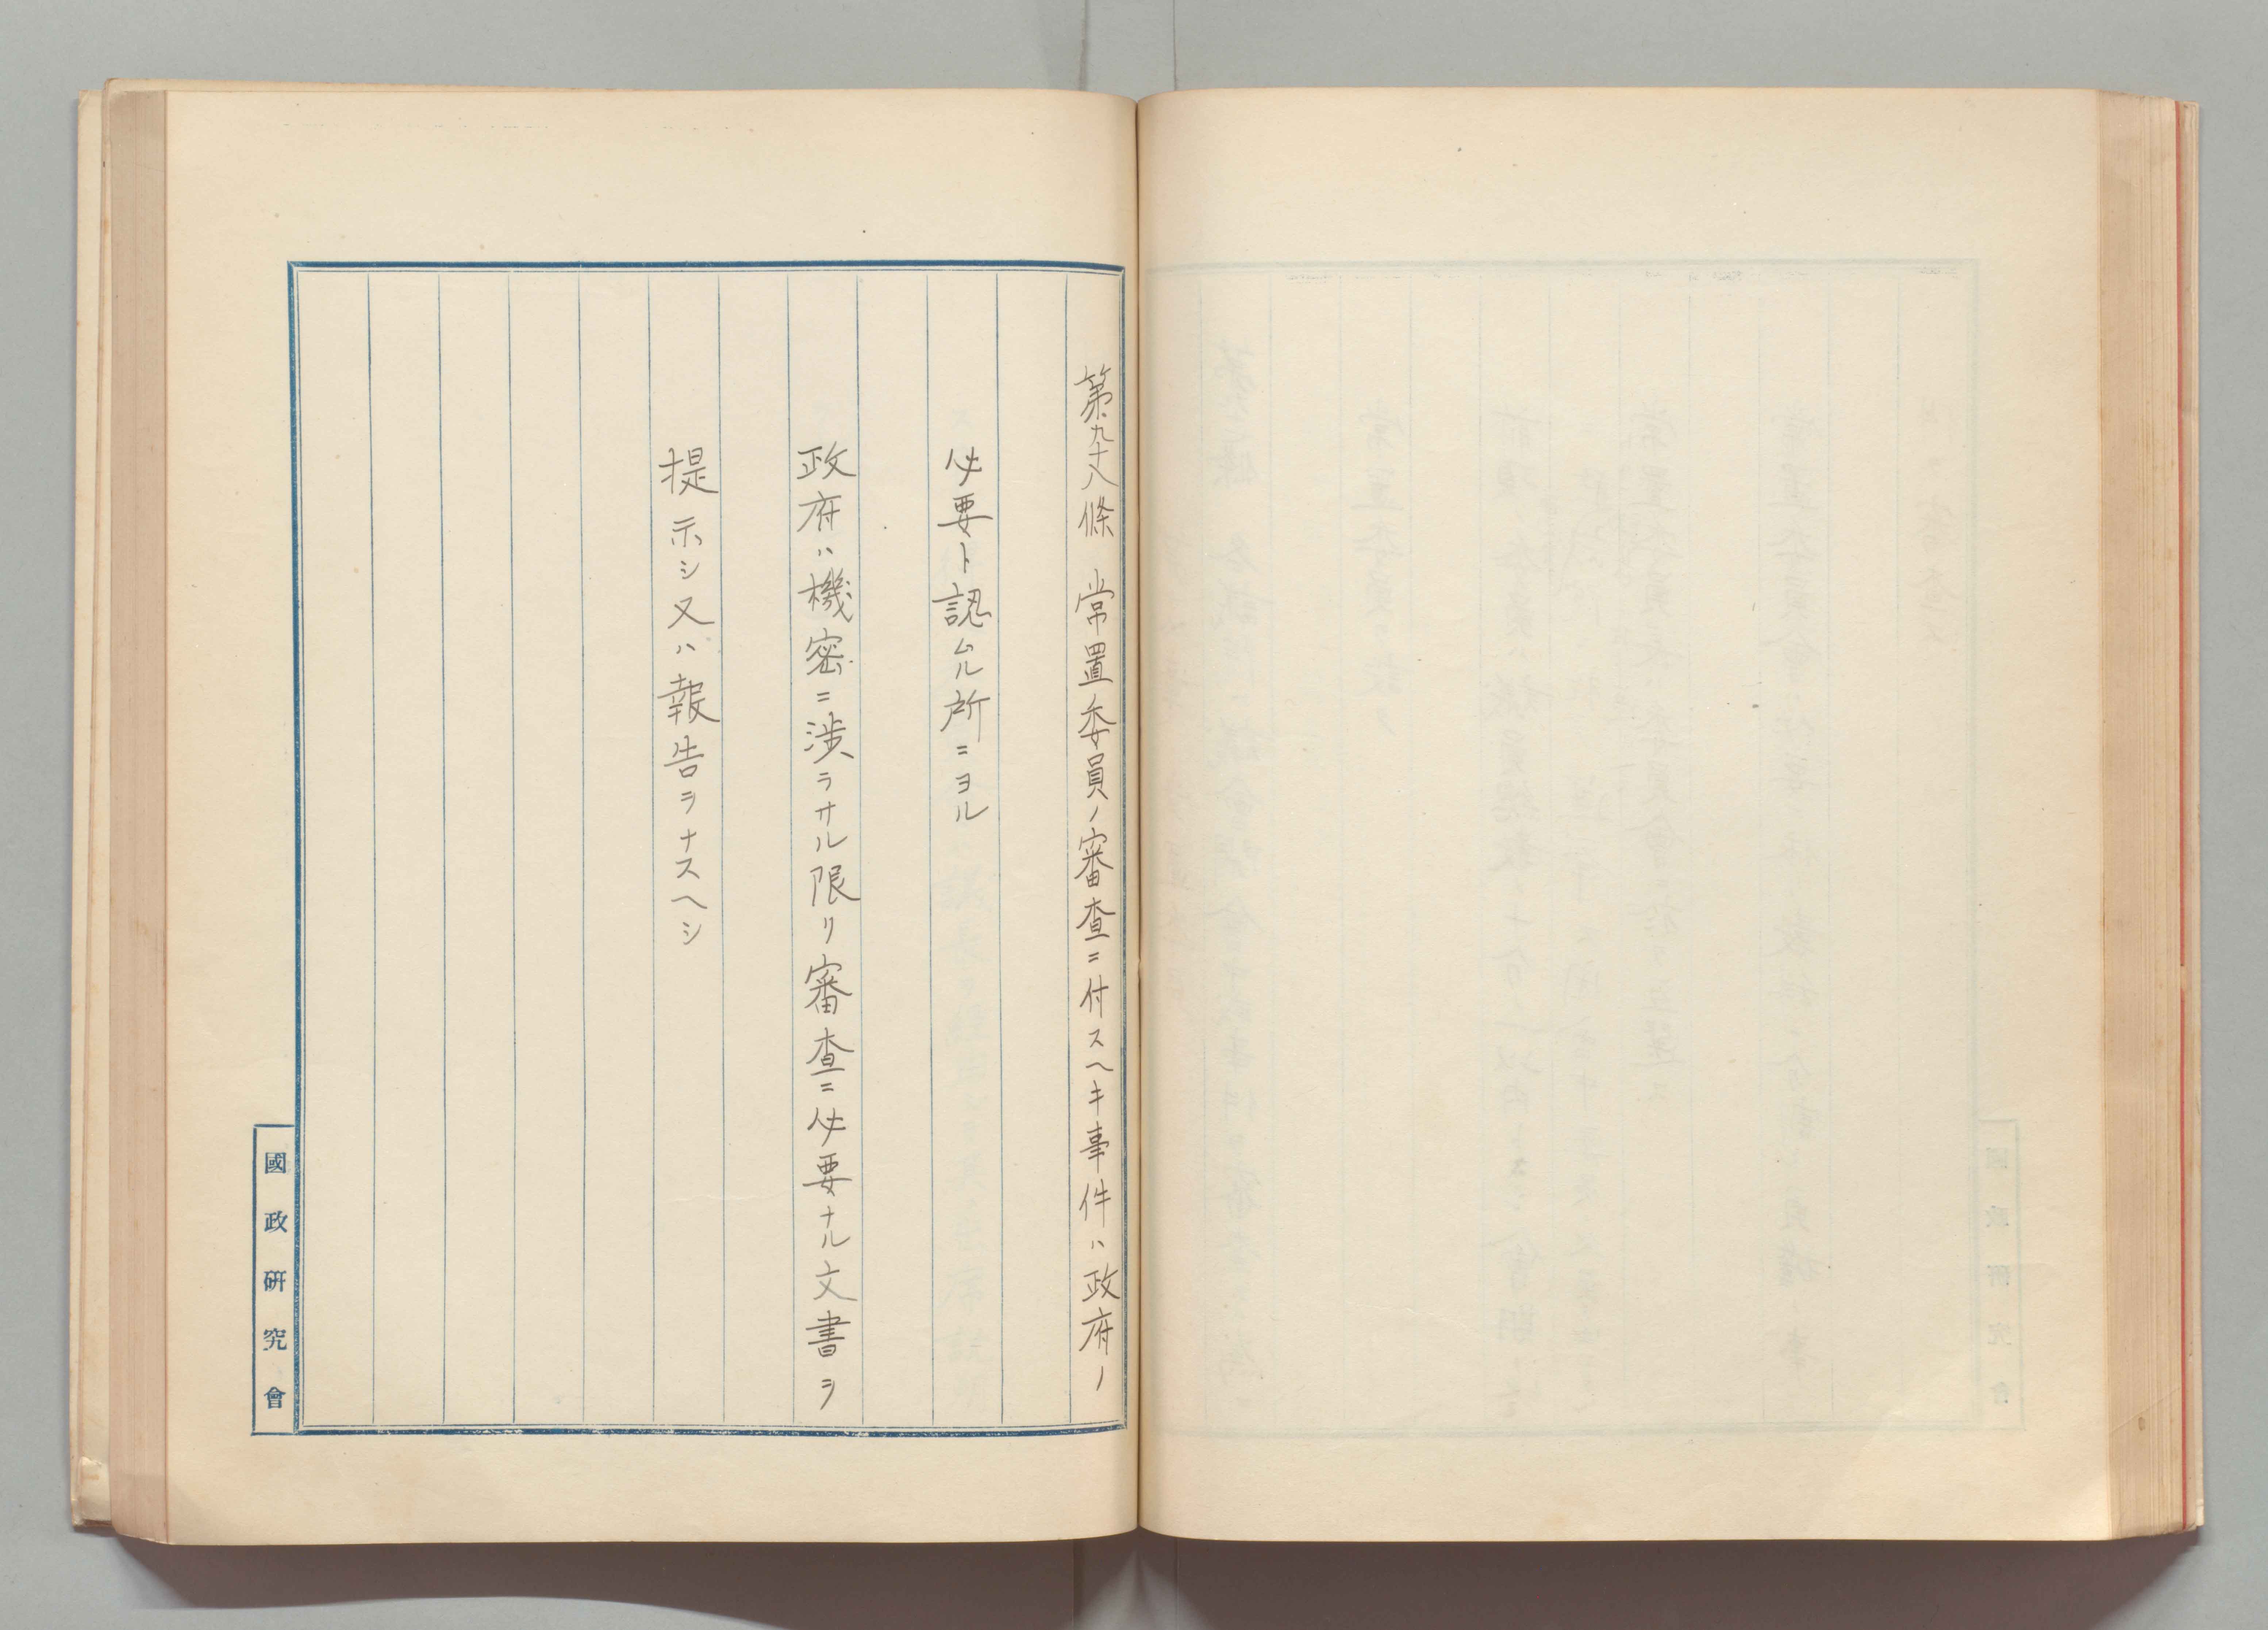 第九十八條 常置委員ノ審査ニ付スヘキ事件ハ政府ノ
必要ト認ムル所ニヨル
政府ハ機密ニ渉ラサル限リ審査ニ必要ナル文書ヲ
提示シ又ハ報告ヲナスヘシ
國政研究會